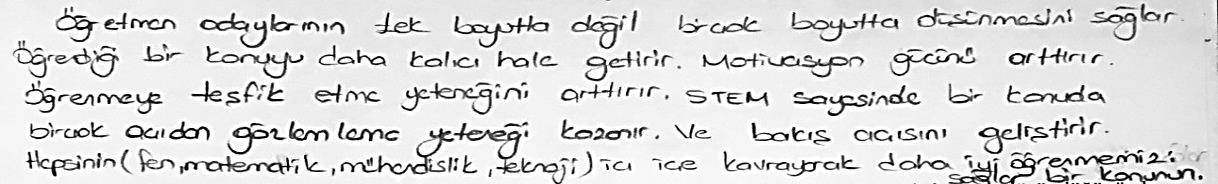 Öğretmen adaylarının tek boyutta değil birçok boyutta düşünmesini sağlar.
Öğrendiği bir konuyu daha kalıcı hale getirir. Motivasyon gücünü arttırır.
Öğrenmeye teşfik etme yeteneğini arttırır. STEM sayesinde bir konuda
birçok açıdan gözlemleme yeteneği kazanır. Ve bakış açısını geliştirir.
Hepsinin (fen, matematik, mühendislik, teknoji) içi içe kavrayarak daha iyi öğrenmemizi
sağlar bir konunun.